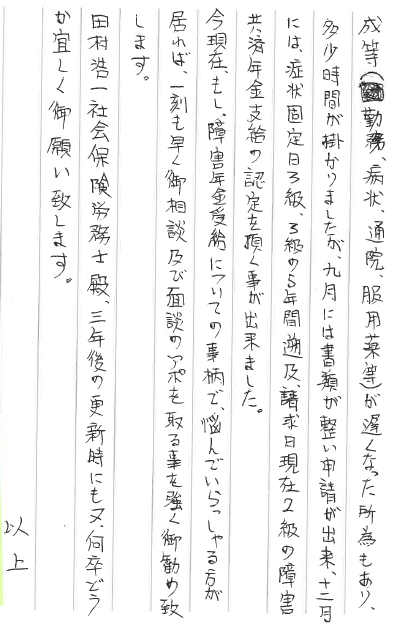 成等(勤務、病状、通院、服用薬等)が遅くなった所為もあり、
多少時間が掛かりましたが、九月には書類が整い申請が出来、十二月
には、症状固定日3級、3級の5年間遡及、請求日現在2級の障害
共済年金支給の認定を頂く事が出来ました。
今現在、もし、障害年金受給についての事柄で、悩んでいらっしゃる方が
居れば、一刻も早く御相談及び面談のアポを取る事を強く御勧め致
します。
田村浩一社会保険労務士殿、三年後の更新時にも又、何卒どう
か宜しく御願い致します。
以上